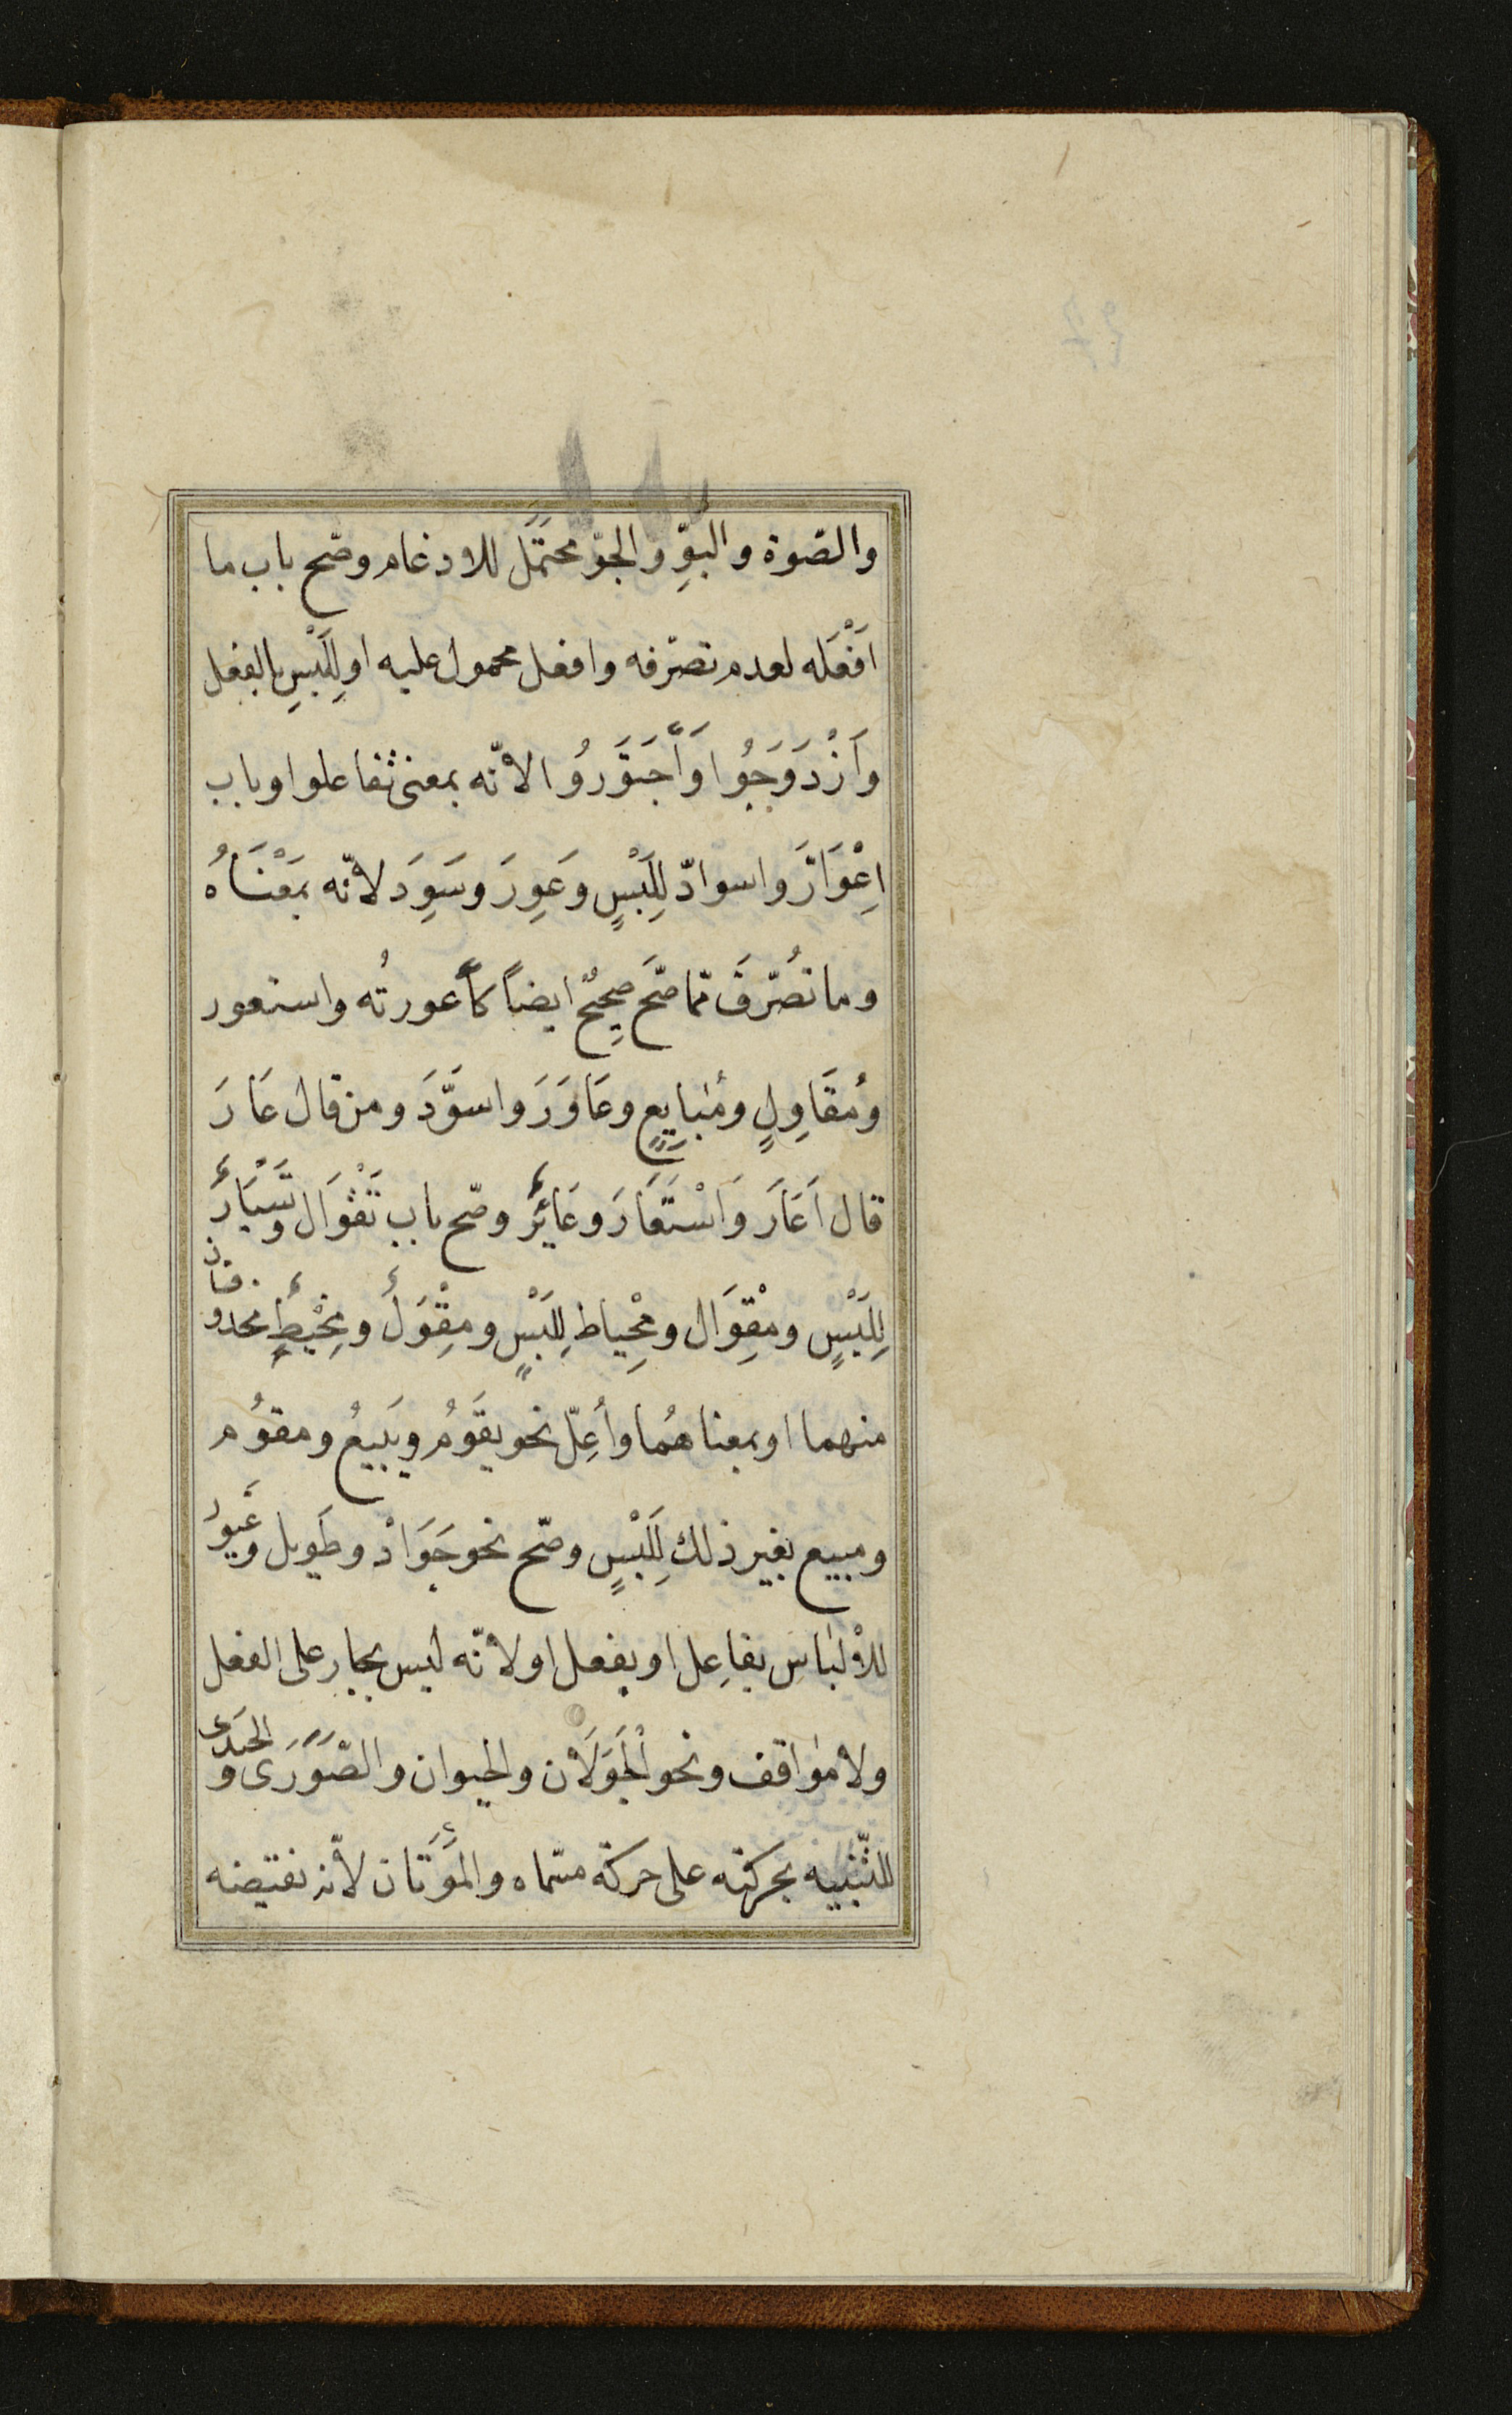 والصّوة والبوِّ والجوّ محتمَل للادغام وصّح باب ما
اَفْعَله لعدم تصرّفه وافعل محمول عليه او لِلَبْسِ بالفعل
وَازْدَوَجُوا وَاجْتَوَرُوا لانّه بمعنى تفاعلوا وباب
اِعْوَارَّ واسوادّ لِلَبْسٍ وعَوِرَ وسَوِدَ لانّه بمَعْنَاهُ
وما تصُرّفَ ممّا صّحَ صحِيحٌ ايضاً كأعورتُه واستعور
ومُقَاوِلٍ ومُبَايِعٍ وعَاوَرَ واسوَّدَ ومن قال عَارَ
قال اَعَارَ وَاسْتَعَارَ وعَائِرٌ وصّح باب تَقْوَال وتَسْيَارٍ
لِلَبْسٍ ومِقْوَال ومِخْياط لِلَبْسٍ ومِقْوَل ومِخْيَطٍ محذوفان
منهما او بمعناهُما وأُعِلّ نحو يقَوُمُ ويَبيعُ ومقوُم
ومبيع بغير ذلك لِلَبْسٍ وصّح نحو جَوَادْ وطَويل وغَيور
للاْلبَاسِ بفاعِل او بفعل او لانّه ليس بجار على الفعل
ولا مواقف ونحو الجَوَلَان والحيوان والصَّوَرَى والحَيَدَى
للتّنْبيه بحركته على حركة مسّماه والمَوَتَان لانّه نقيضه